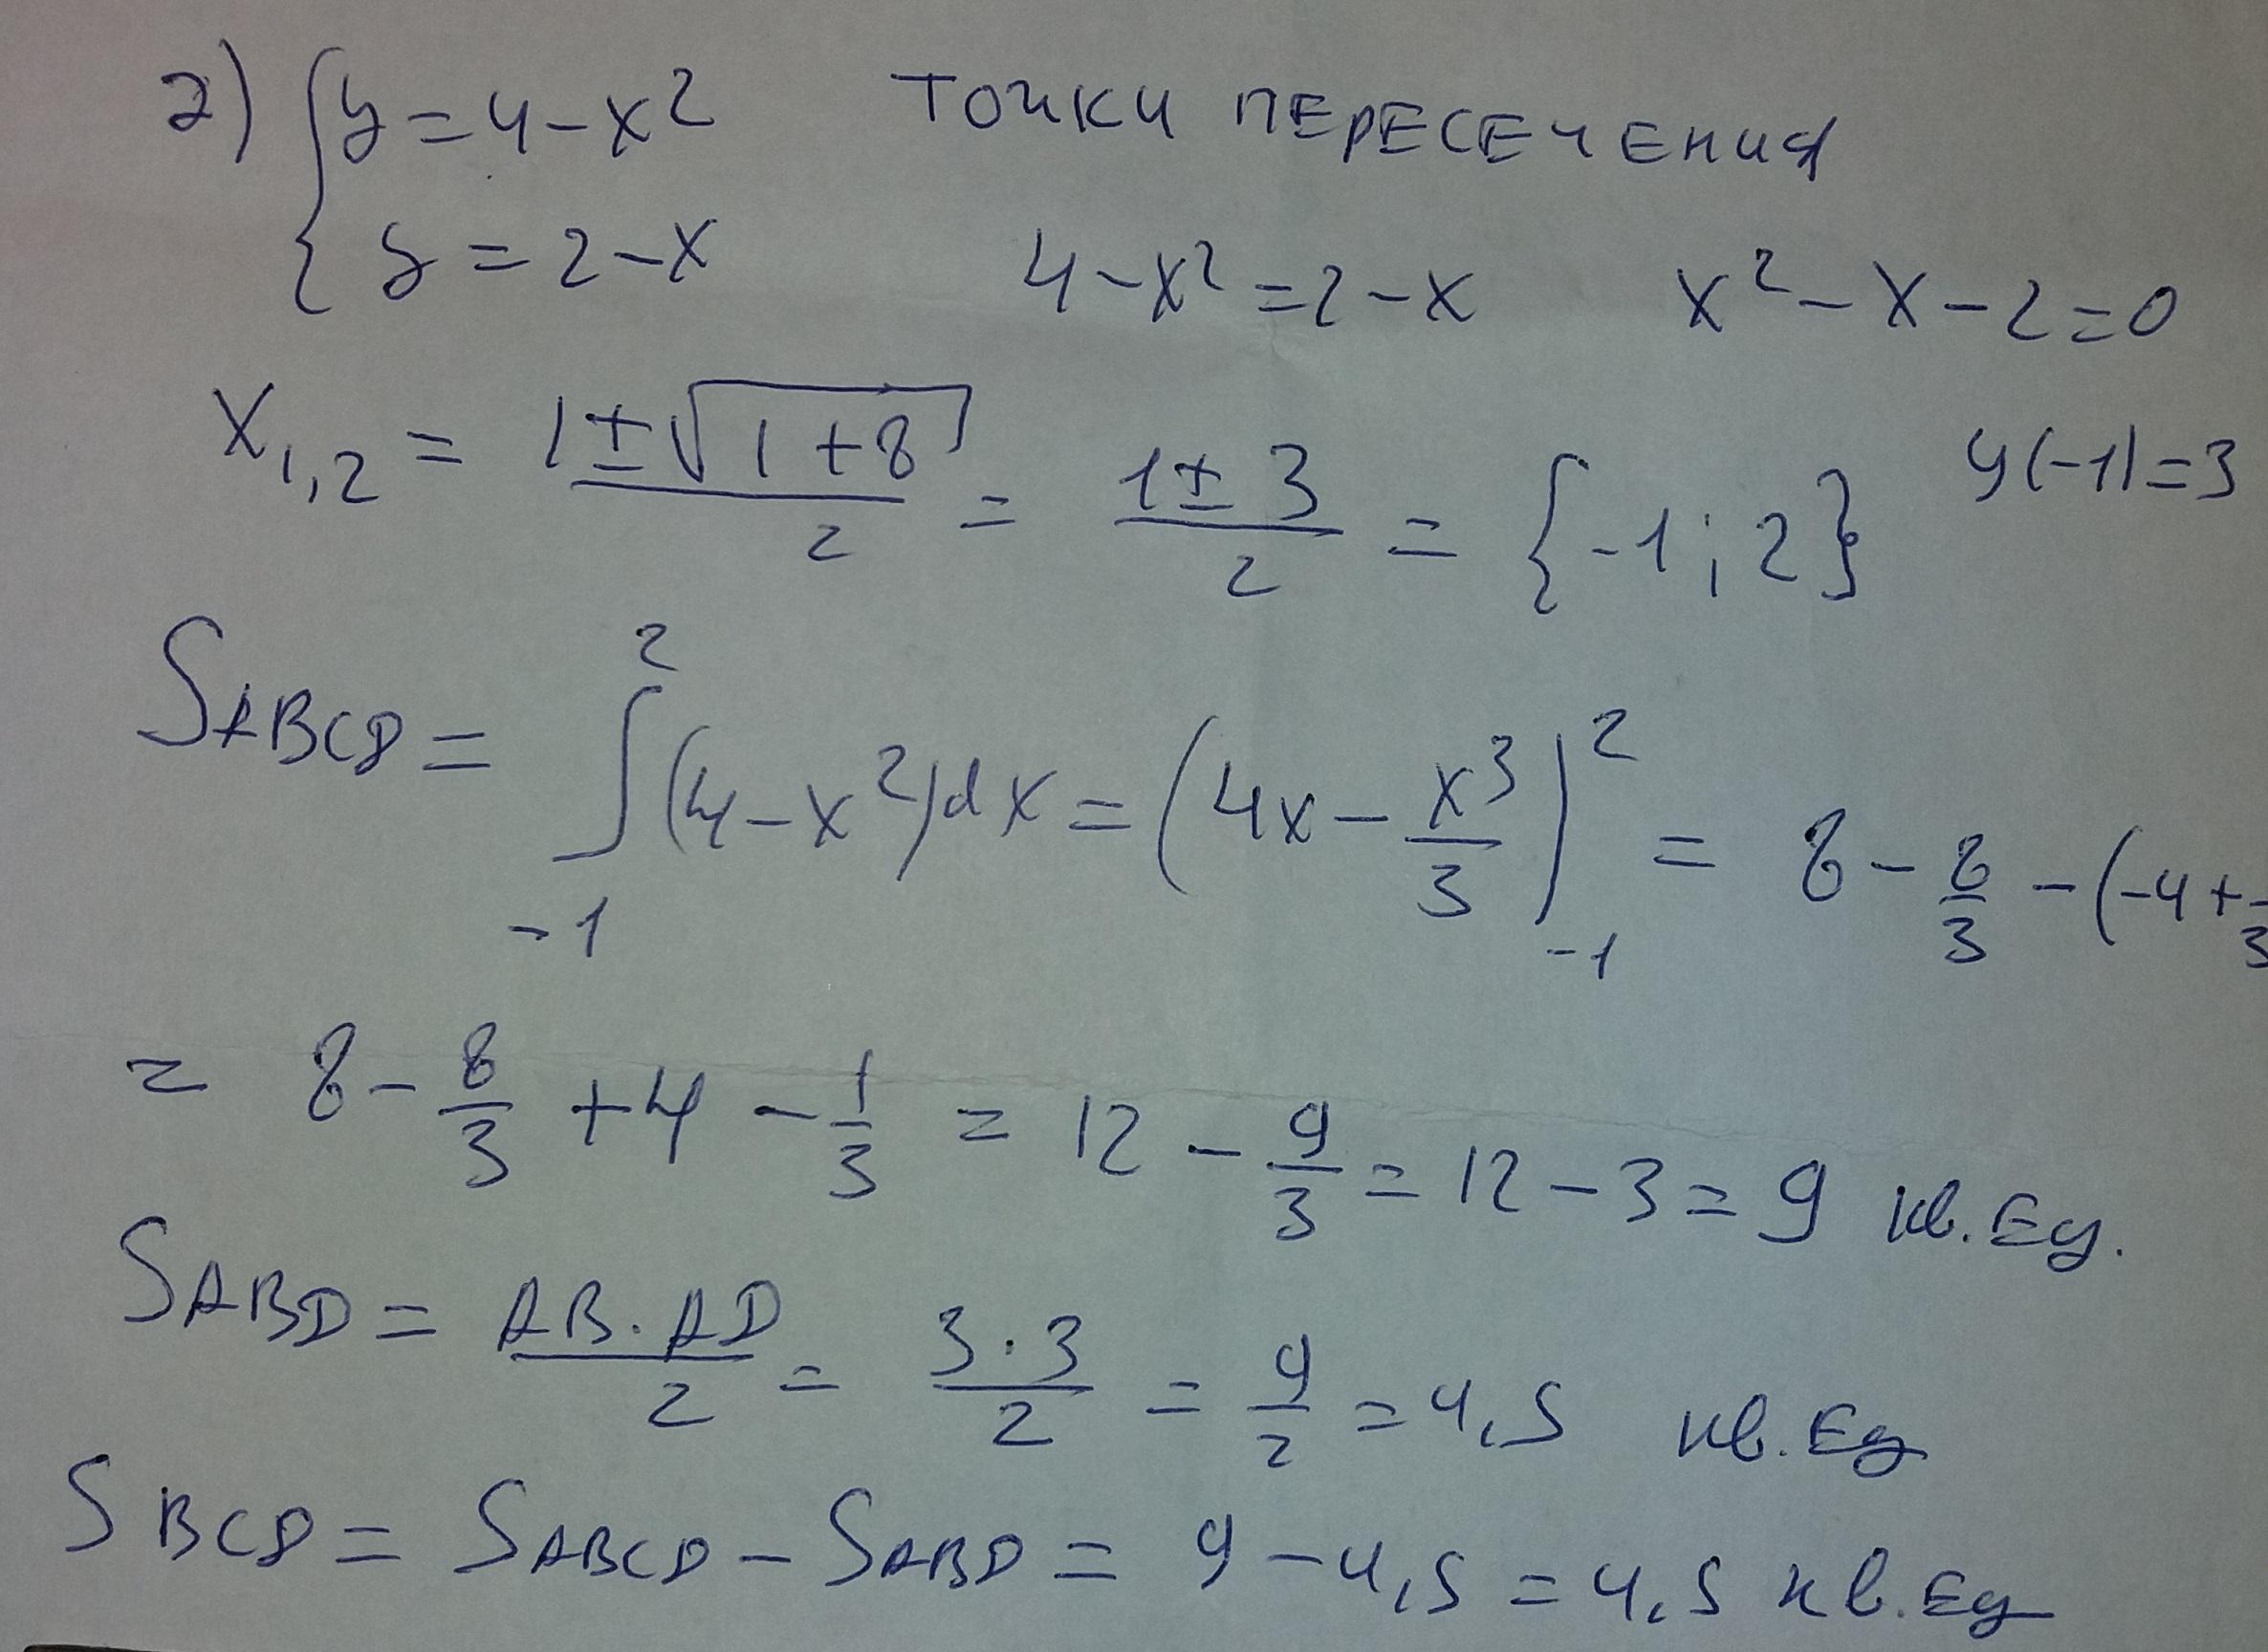 2) { y = 4 - x² ТОЧКИ ПЕРЕСЕЧЕНИЯ
y = 2 - x 4 - x² = 2 - x x² - x - 2 = 0
x₁,₂ = (1 ± √(1 + 8)) / 2 = (1 ± 3) / 2 = {-1; 2} y(-1) = 3
S_ABCD = ∫₋₁² (4 - x²)dx = (4x - x³/3)|₋₁² = 8 - 8/3 - (-4 +
= 8 - 8/3 + 4 - 1/3 = 12 - 9/3 = 12 - 3 = 9 кв. Ед.
S_ABD = AB · AD / 2 = 3 · 3 / 2 = 9/2 = 4,5 кв. Ед
S_BCD = S_ABCD - S_ABD = 9 - 4,5 = 4,5 кв. Ед